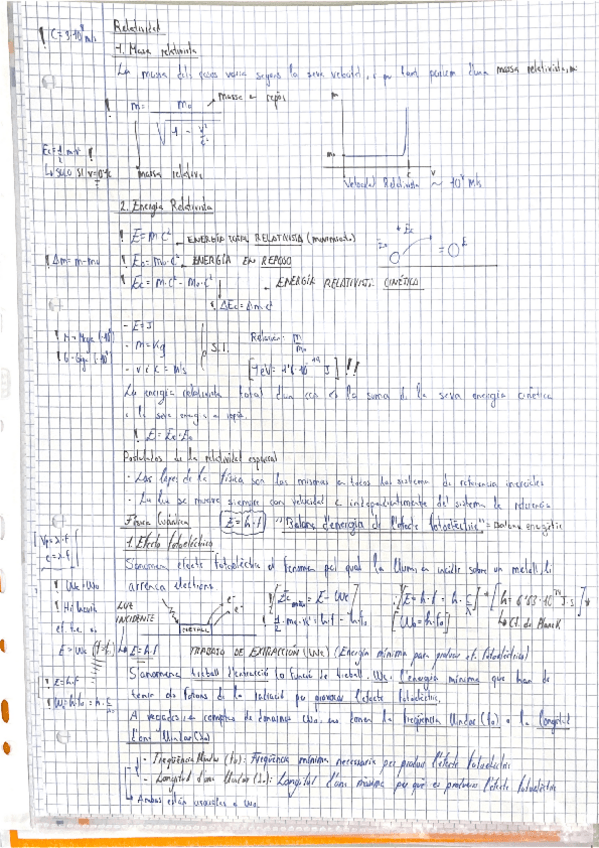 Relatividad
! C=3·10⁸ m/s
1. Masa relativista
La massa dels cossos varia segons la seva velocitat, i per tant parlem d'una massa relativista, m:
! m= m₀ / √1 - v²/c² → massa en repós
massa relativa
Ec=½ m·v² !
m
m₀
c v
Velocidad Relativista ~ 10⁸ m/s
2. Energía Relativista
! E=m·c² → ENERGÍA TOTAL RELATIVISTA (movimiento)
! Δm = m-m₀
! E₀=m₀·c² → ENERGÍA EN REPOSO
! Ec = m·c² - m₀·c² → ENERGÍA RELATIVISTA CINÉTICA
! ΔEc = Δm·c²
- E=J
- m=Kg
S.I.
Relación: m/m₀
- v i c = m/s
La energia relativista total d'un cos es la suma de la seva energia cinètica
i la seva energia en repós.
! E=Ec+E₀
Postulados de la relatividad especial
· Las leyes de la física son las mismas en todos los sistema de referencia inerciales
· La luz se mueve siempre con velocidad c independientemente del sistema de referencia
Física Cuántica E=h·f "Balanç d'energia de l'efecte fotoelèctric" = Balance energético
1. Efecto fotoeléctrico
S'anomena efecte fotoelèctric el fenomen pel qual la llum en incidir sobre un metall, li
arrenca electrons
LUZ INCIDENTE
e⁻
e⁻
METALL
E=h·f
! E=h·f = h·c/λ
h=6'63·10⁻³⁴ J·s
Ct. de Planck
W₀=h·f₀
TRABAJO DE EXTRACCIÓN (We) (Energía mínima para producir ef. fotoeléctrico)
S'anomena treball d'extracció o funció de treball, We, l'energia mínima que han de
tenir els fotons de la radiació per provocar l'efecte fotoelèctric.
A vegades, en comptes de donar-nos W₀, ens donen la freqüència llindar (f₀) o la longitud
d'ona llindar (λ₀)
- Freqüència llindar (f₀): Freqüència mínima necessaria per produir l'efecte fotoelèctric
- Longitud d'ona llindar (λ₀): Longitud d'ona màxima per què es produeixi l'efecte fotoelèctric